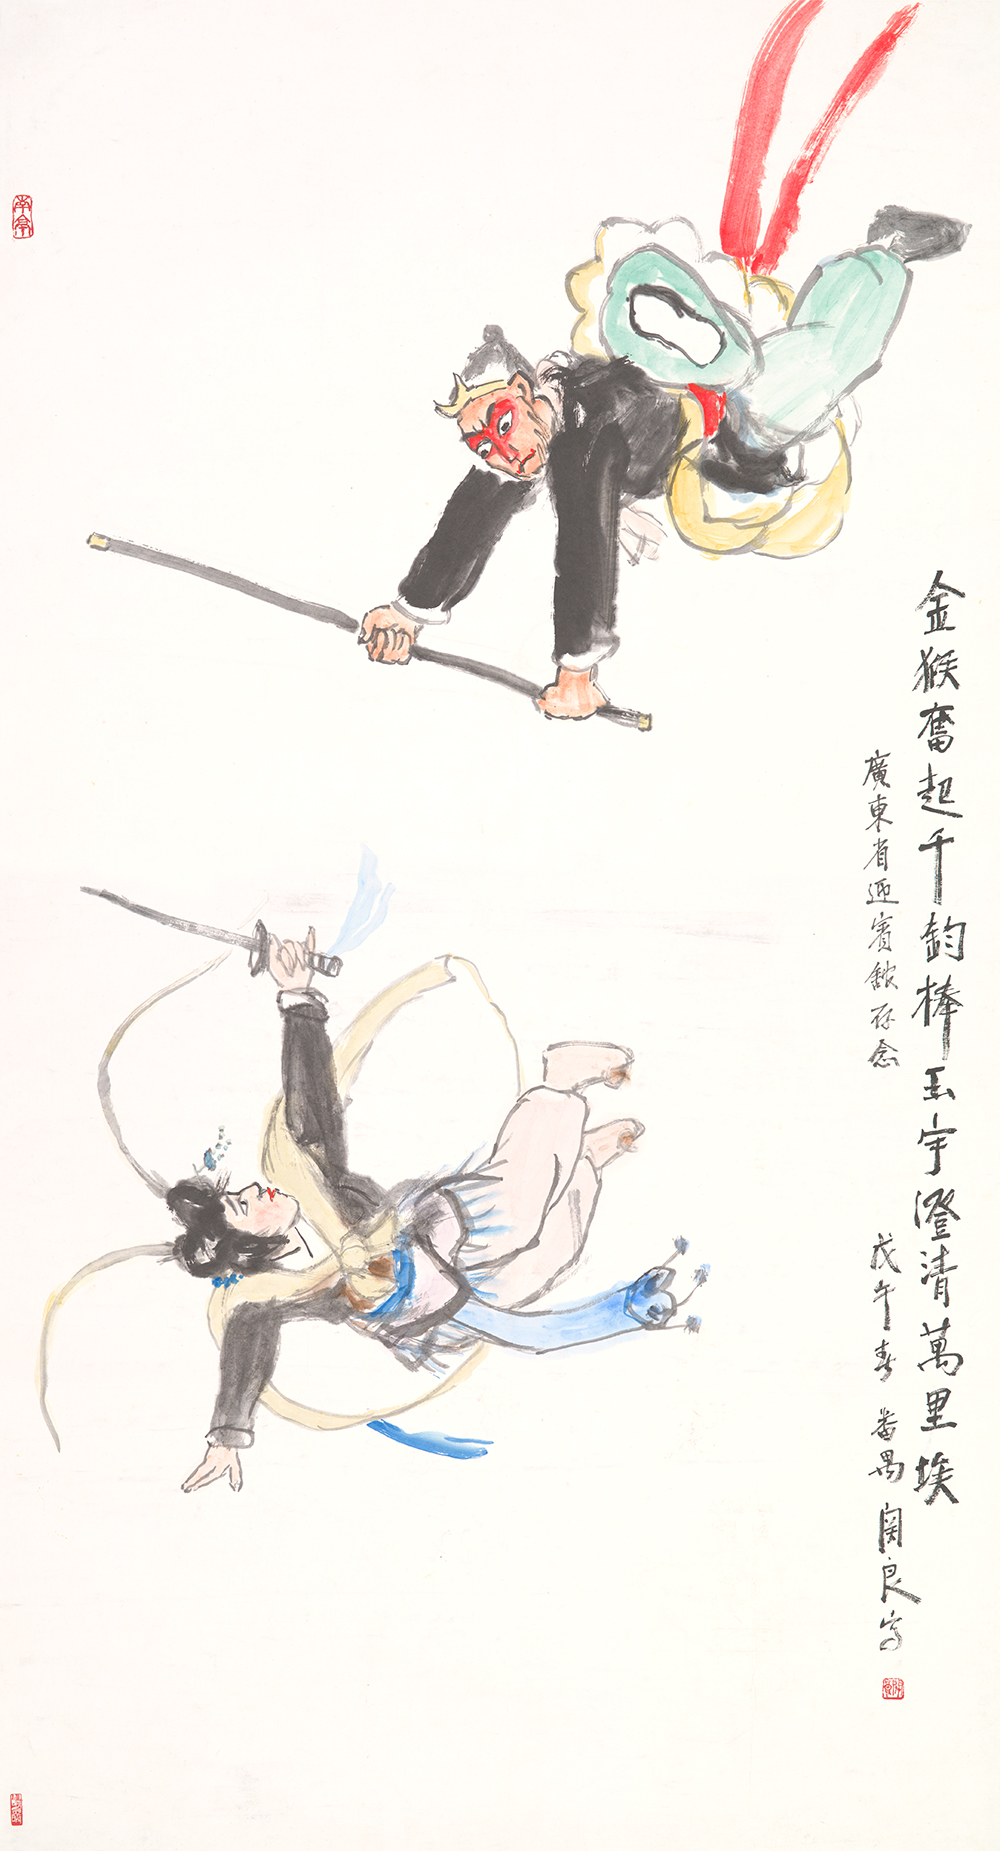 金猴奮起千鈞棒玉宇澄清萬里埃
廣東省迎賓館存念
戊午春 番禺 関良写
南亭